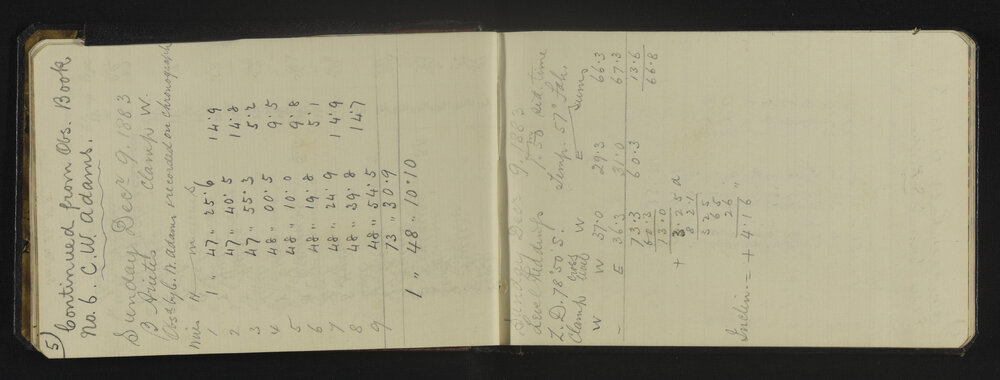 5)
Continued from Obs. Book
No. 6. C. W. Adams.
Sunday Decr 9. 1883
β Arietis Clamp W.
Obsd by C. W. Adams & recorded on Chronograph
Wires H m s
1 1 " 47 " 25.6 14.9
2 47 " 40.5 14.8
3 47 " 55.3 5.2
4 48 " 00.5 9.5
5 48 " 10.0 9.8
6 48 " 19.8 5.1
7 48 " 24.9 14.9
8 48 " 39.8 14.7
9 48 " 54.5
73 " 30.9
1 " 48 " 10.10
Sunday Decr 9. 1883
Level Readings 1.50 sid. time
Z. D. 78°50' S. Temp. 57° Fah.
Clamp Cross level W E Sums
W W 37.0 29.3 66.3
– E 36.3 31.0 67.3
73.3 60.3 13.6
60.3 66.8
13.0
+ 3.25 d
8 2.1
3 25
65
26
Inclin. = + 4.16 "